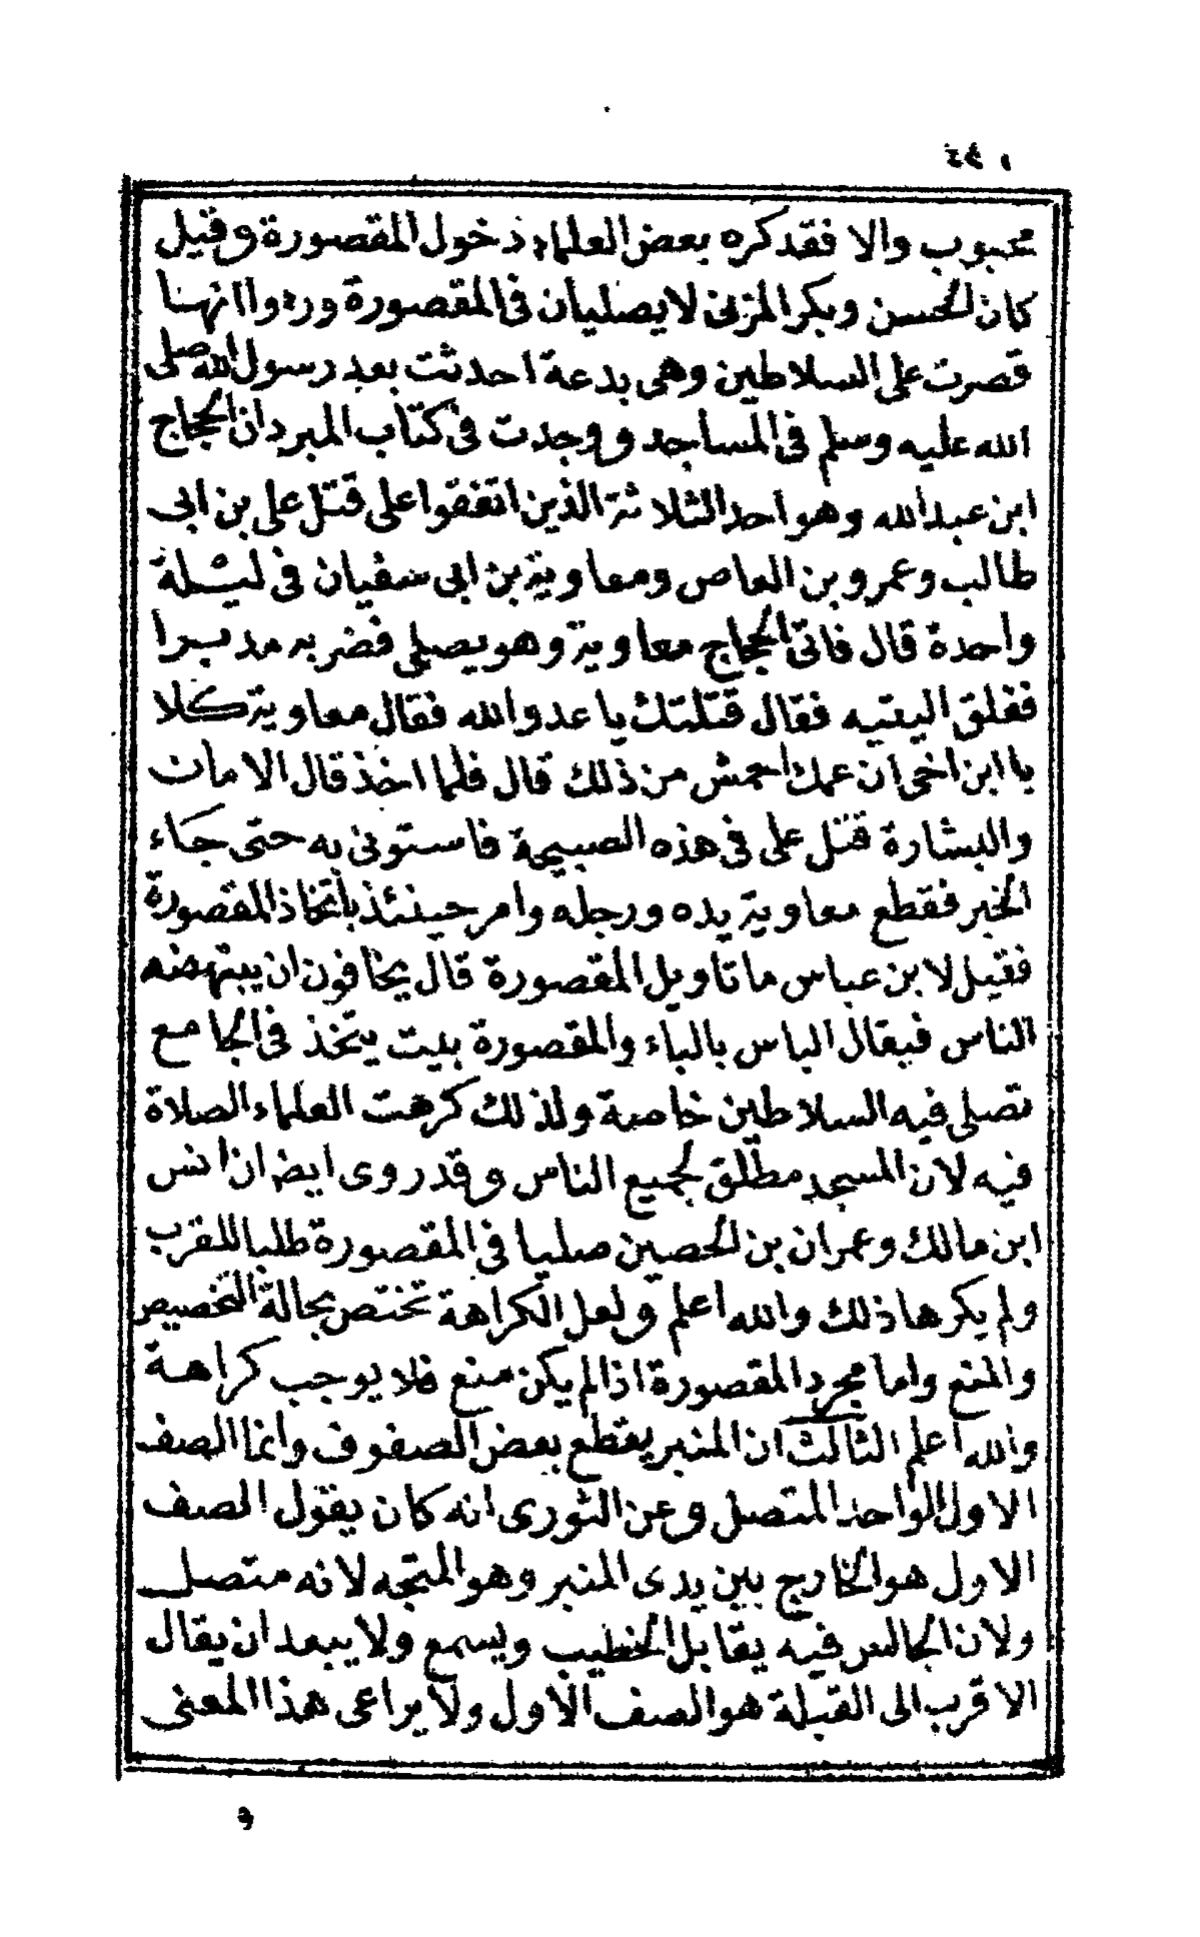 محبوب والا فقد كره بعض العلماء دخول المقصورة وقيل
كان الحسن وبكر المزنى لا يصليان فى المقصورة وره وا انهنا
قصرت على السلاطين وهى بدعة احدثت بعد رسول الله صلى
الله عليه وسلم فى المساجد ووجدت فى كتاب المبرد ان الحجاج
ابن عبد الله وهو احد الثلاثة الذين اتفقوا على قتل على بن ابى
طالب وعمرو بن العاص ومعاوية بن ابى سفيان فى ليلة
واحدة قال فاتى الحجاج معاوية وهو يصلى فضربه مدبرا
ففلق اليتيه فقال قتلتك يا عدو الله فقال معاوية كلا
يا ابن اخى ان عمك احمش من ذلك قال فلما اخذ قال الامان
والبشارة قتل على فى هذه الصبيحة فاستونى به حتى جاء
الخبر فقطع معاوية يده ورجله وامر حينئذ باتخاذ المقصورة
فقيل لابن عباس ما تاويل المقصورة قال يخافون ان يبتهضه
الناس فيقال الباس بالباء والمقصورة بيت يتخذ فى الجامع
تصلى فيه السلاطين خاصة ولذلك كرهت العلماء الصلاة
فيه لان المسجد مطلق لجميع الناس وقد روى ايضا ان انس
ابن مالك وعمران بن الحصين صليا فى المقصورة طلبا للقرب
ولم يكرها ذلك والله اعلم ولعل الكراهة تختص بحالة التخصيص
والمنع واما مجرد المقصورة اذا لم يكن منع فلا يوجب كراهة
والله اعلم الثالث ان المنبر يقطع بعض الصفوف وانما الصف
الاول الواحد المتصل وعن الثورى انه كان يقول الصف
الاول هو الخارج بين يدى المنبر وهو المتجه لانه متصل
ولان الجالس فيه يقابل الخطيب ويسمع ولا يبعد ان يقال
الاقرب الى القبلة هو الصف الاول ولا يراعى هذا المعنى